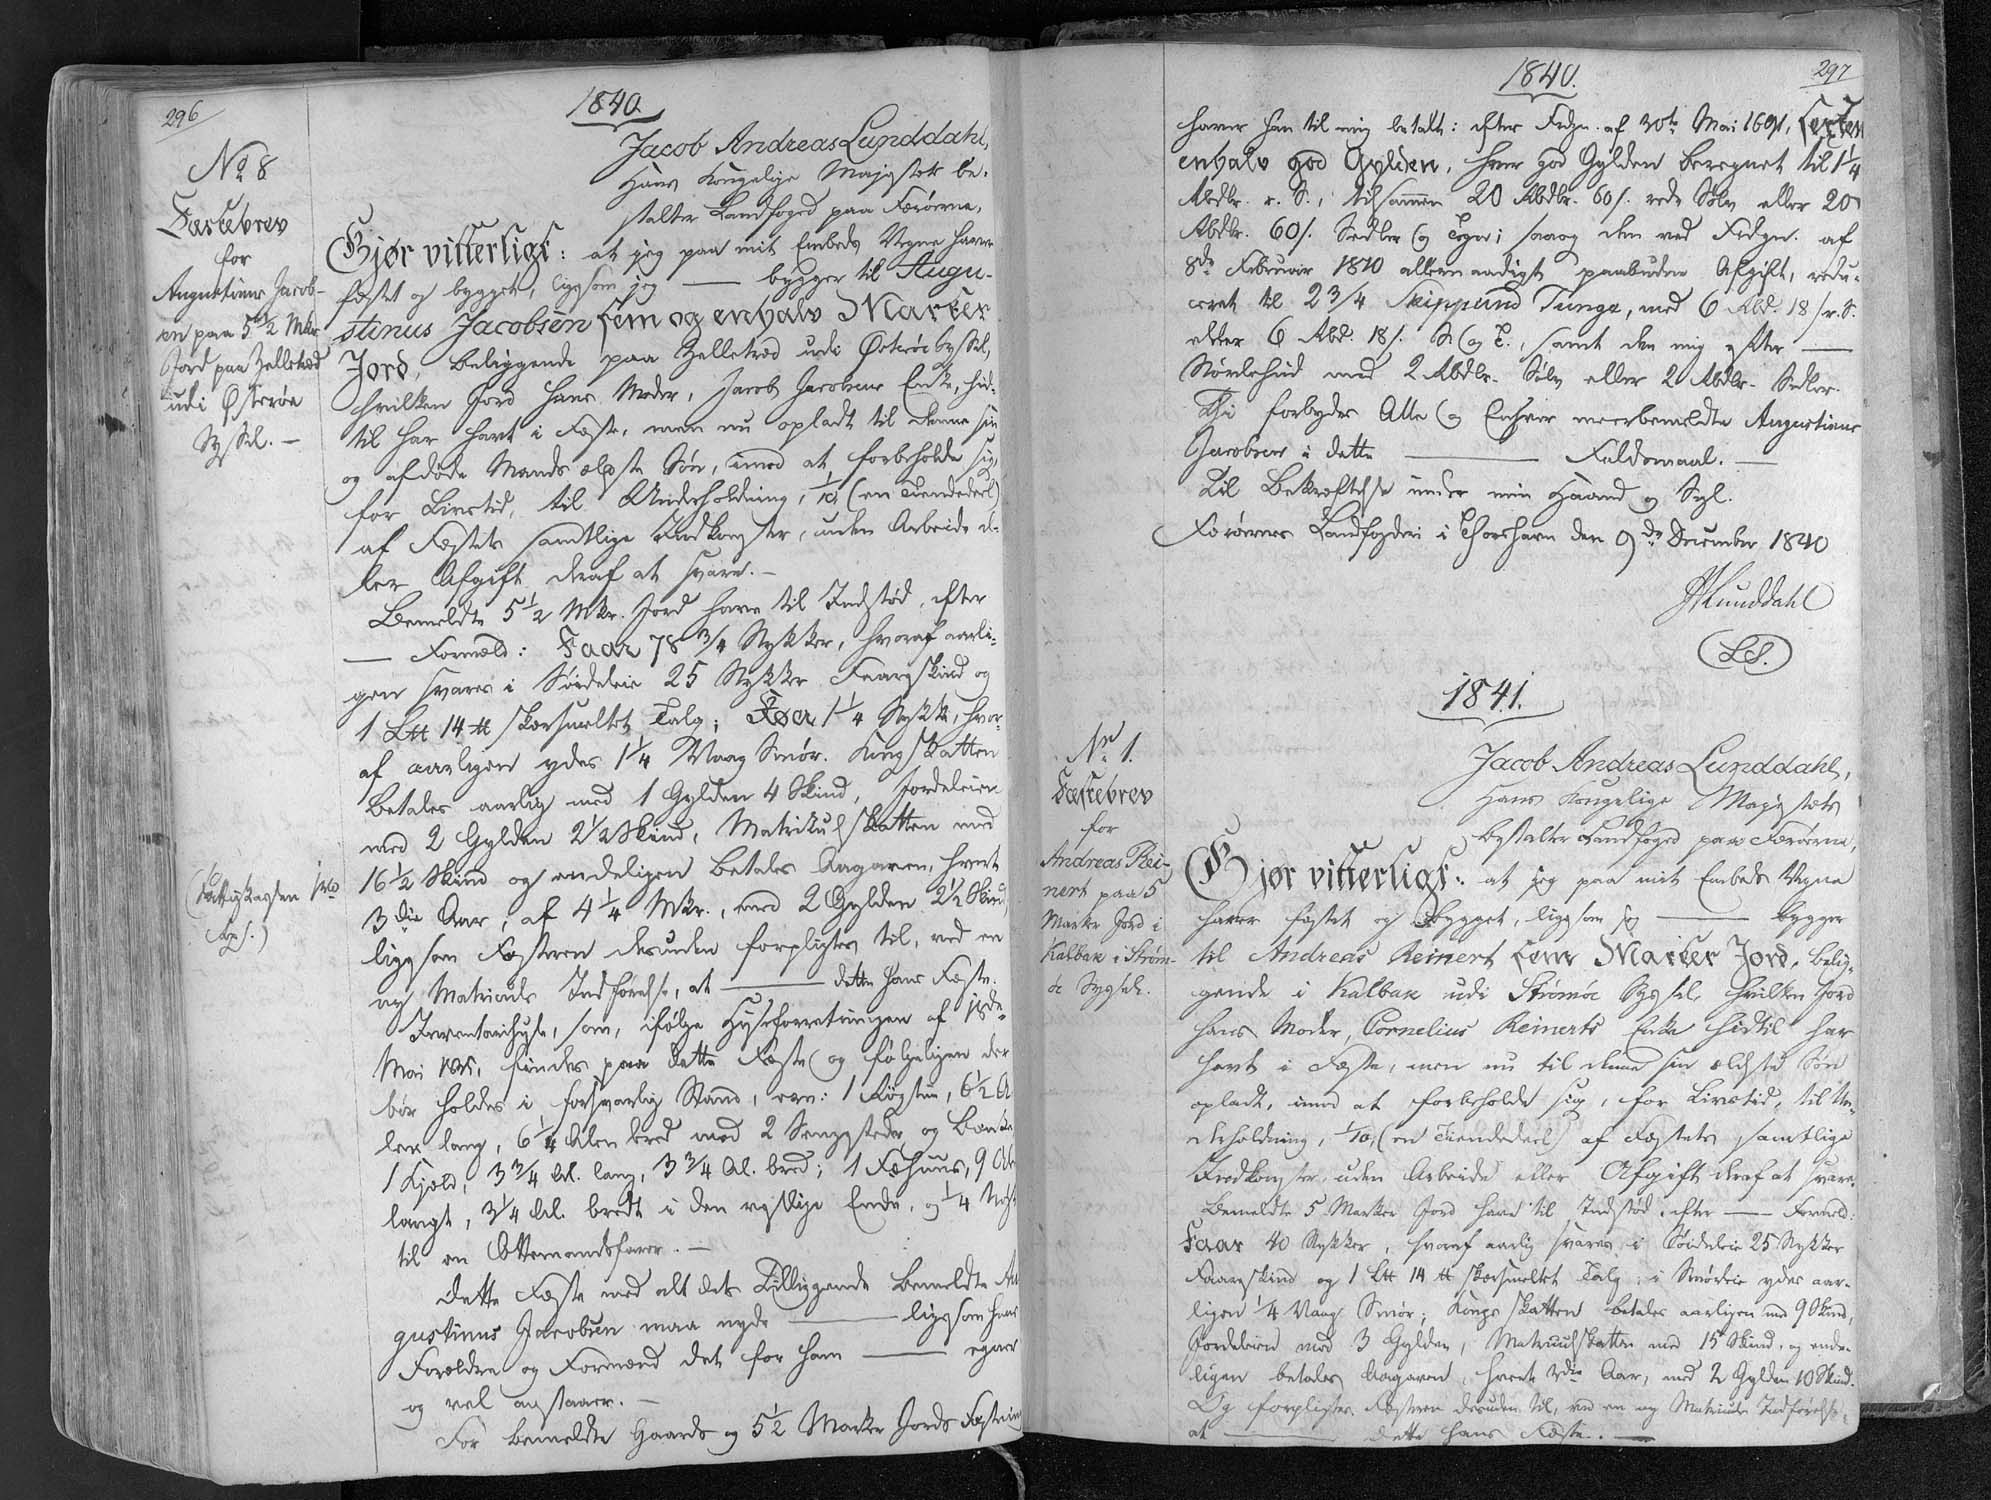 296
1840.
No 8
Fæstebrev
for
Augustinus Jacob-
sen paa 5 1/2 Mkr
Jord paa Selletræd
udi Østerøe
Syssel. —
Jacob Andreas Lunddahl,
Hans Kongelige Majestæts be-
stalter Landfoged paa Færøerne,
Gjør vitterligt: at jeg paa mit Embeds Vegne haver
fæstet og bygget, ligesom jeg — bygger til Augu-
stinus Jacobsen fem og enhalv Marker
Jord, beliggende paa Selletræd udi Østerøe Syssel,
hvilken Jord hans Moder, Jacob Jacobsens Enke, hid-
til har havt i Fæste, men nu opladt til denne sin
og afdøde Mands ældste Søn, imod at forbeholde sig,
for Livstid, til Underholdning, 1/10, (en Tiendedeel)
af Fæstets samtlige Indkomster, uden Arbeide el-
ler Afgift deraf at svare. —
Bemeldte 5 1/2 Mkr. Jord have til Indstød, efter
— Formeld: Faar 78 3/4 Stykker, hvoraf aarli-
gen svares i Søideleie 25 Stykker Faareskind og
1 L℔ 14 ℔ skærsmeltet Talg; Køer 1 1/4 Stykke, hvor-
af aarligen ydes 1 1/4 Vaag Smør. Kongsskatten
betales aarlig med 1 Gylden 4 Skind, Jordeleien
med 2 Gylden 2 1/2 Skind, Matrikulskatten med
16 1/2 Skind og endeligen betales Aagaven, hvert
3die Aar, af 4 1/4 Mkr., med 2 Gylden 2 1/2 Skind
ligesom Fæsteren desuden forpligtes til, ved en
ny Matriculs Indførelse, at — dette hans Fæste.
Inventarihuse, som, ifølge Husforretningen af 18de
Mai findes paa dette Fæste og følgeligen der
bør holdes i forsvarlig Stand, ere: 1 Røgstue, 6 1/2 A-
len lang, 6 1/4 Alen bred med 2 Sengesteder og Bænke
1 Kjeld, 3 3/4 Al. lang, 3 3/4 Al. bred; 1 Fæhuus, 9 Alen
langt, 3 1/4 Al. bredt i den Ende, og 1/4 Nøst
til en Ottemandsfarer. —
Dette Fæste med alt dets Tilliggende bemeldte Au-
gustinus Jacobsen maa nyde — ligesom hans
Forældre og Formænd det for ham — egner
og vel anstaaer. —
For bemeldte Gaards og 5 1/2 Marker Jords Fæstning
297
1840.
haver han til mig betalt: efter Frdgn. af 30te Mai 1691,
enhalv god Gylden, hver god Gylden beregnet til 1 1/4
Rbdlr. r. S., tilsammen 20 Rbdlr. 60 s. rede Sølv eller 20
Rbdlr. 60 s. Sedler og Tegn; saaog den ved Frdgn. af
8de Februar 1810 allernaadigst paabudne Afgift, redu-
ceret til 2 3/4 Skippund Tunge, med 6 Rbd. 18 s. r. S.
eller 6 Rbd. 18 s. S. og T., samt den mig efter —
Størlehud med 2 Rbdlr. Sølv eller 2 Rbdlr. Sedler.
Thi forbydes Alle og Enhver meerbemeldte Augustinus
Jacobsen i dette — Faldsmaal. —
Til Bekræftelse under min Haand og Segl.
Færøernes Landfogderi i Thorshavn den 9de December 1840
Lunddahl
LS.
1841.
No 1.
Fæstebrev
for
Andreas Rei-
nert paa 5
Marker Jord i
Kalbak i Strøm-
øe Syssel.
Jacob Andreas Lunddahl,
Hans Kongelige Majestæts
bestalter Landfoged paa Færøerne,
Gjør vitterligt: at jeg paa mit Embeds Vegne
haver fæstet og bygget, ligesom jeg — bygger
til Andreas Reinert fem Marker Jord, belig-
gende i Kalbak udi Strømøe Syssel, hvilken Jord
hans Moder, Cornelius Reinerts Enke hidtil har
havt i Fæste, men nu til denne sin ældste Søn
opladt, imod at forbeholde sig, for Livstid, til Un-
derholdning, 1/10, (en Tiendedeel) af Fæstets samtlige
Indkomster, uden Arbeide eller Afgift deraf at svare.
Bemeldte 5 Marker Jord have til Indstød, efter — Formeld:
Faar 40 Stykker, hvoraf aarlig svares i Søideleie 25 Stykker
Faareskind og 1 L℔ 14 ℔ skærsmeltet Talg; i Smørleie ydes aar-
ligen 1/4 Vaag Smør; Kongsskatten betales aarligen med 9 Skind,
Jordeleien med 3 Gylden, Matriculskatten med 15 Skind, og ende-
ligen betales Aagaven, hvert 3die Aar, med 2 Gylden 10 Skind.
Og forpligtes Fæsteren desuden til, ved en ny Matriculs Indførelse,
at — dette hans Fæste. —